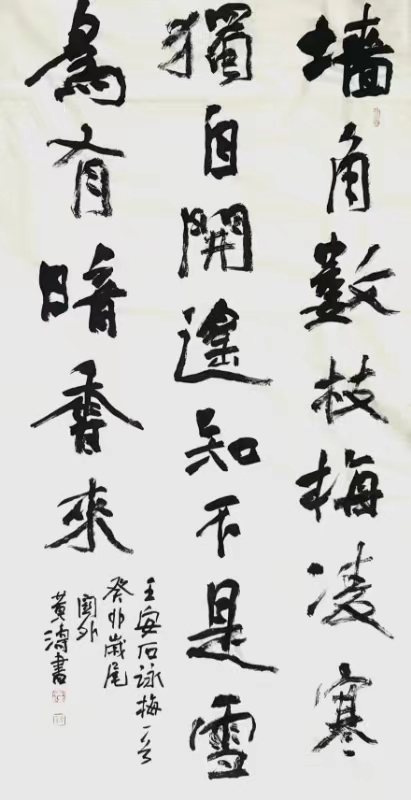 墙角數枝梅凌寒
獨自開遙知不是雪
為有暗香來
王安石詠梅一首
癸卯歲尾
外
黄濤書